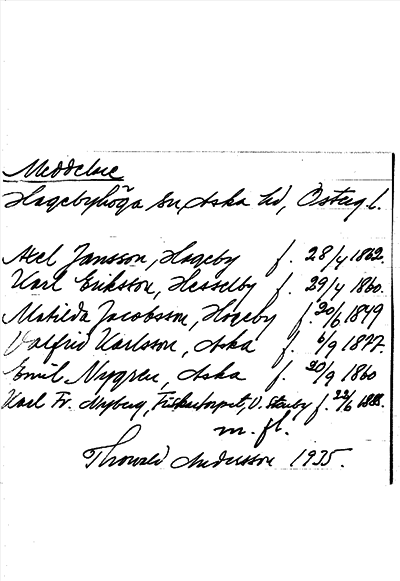 Meddelare
Hagebyhöga sn, Aska hd, Östergl.
Axel Jansson, Hageby f. 28/4 1862.
Karl Erikson, Hesselby f. 29/4 1860.
Matilda Jacobsson, Hageby f. 20/6 1849
Valfrid Karlsson, Aska f. 6/9 1877.
Emil Nygren, Aska f. 20/9 1860
Karl Fr. Nyberg, Fiskartorpet, V. Stenby f. 22/6 1888.
m. fl.
Thorvald Andersson 1935.